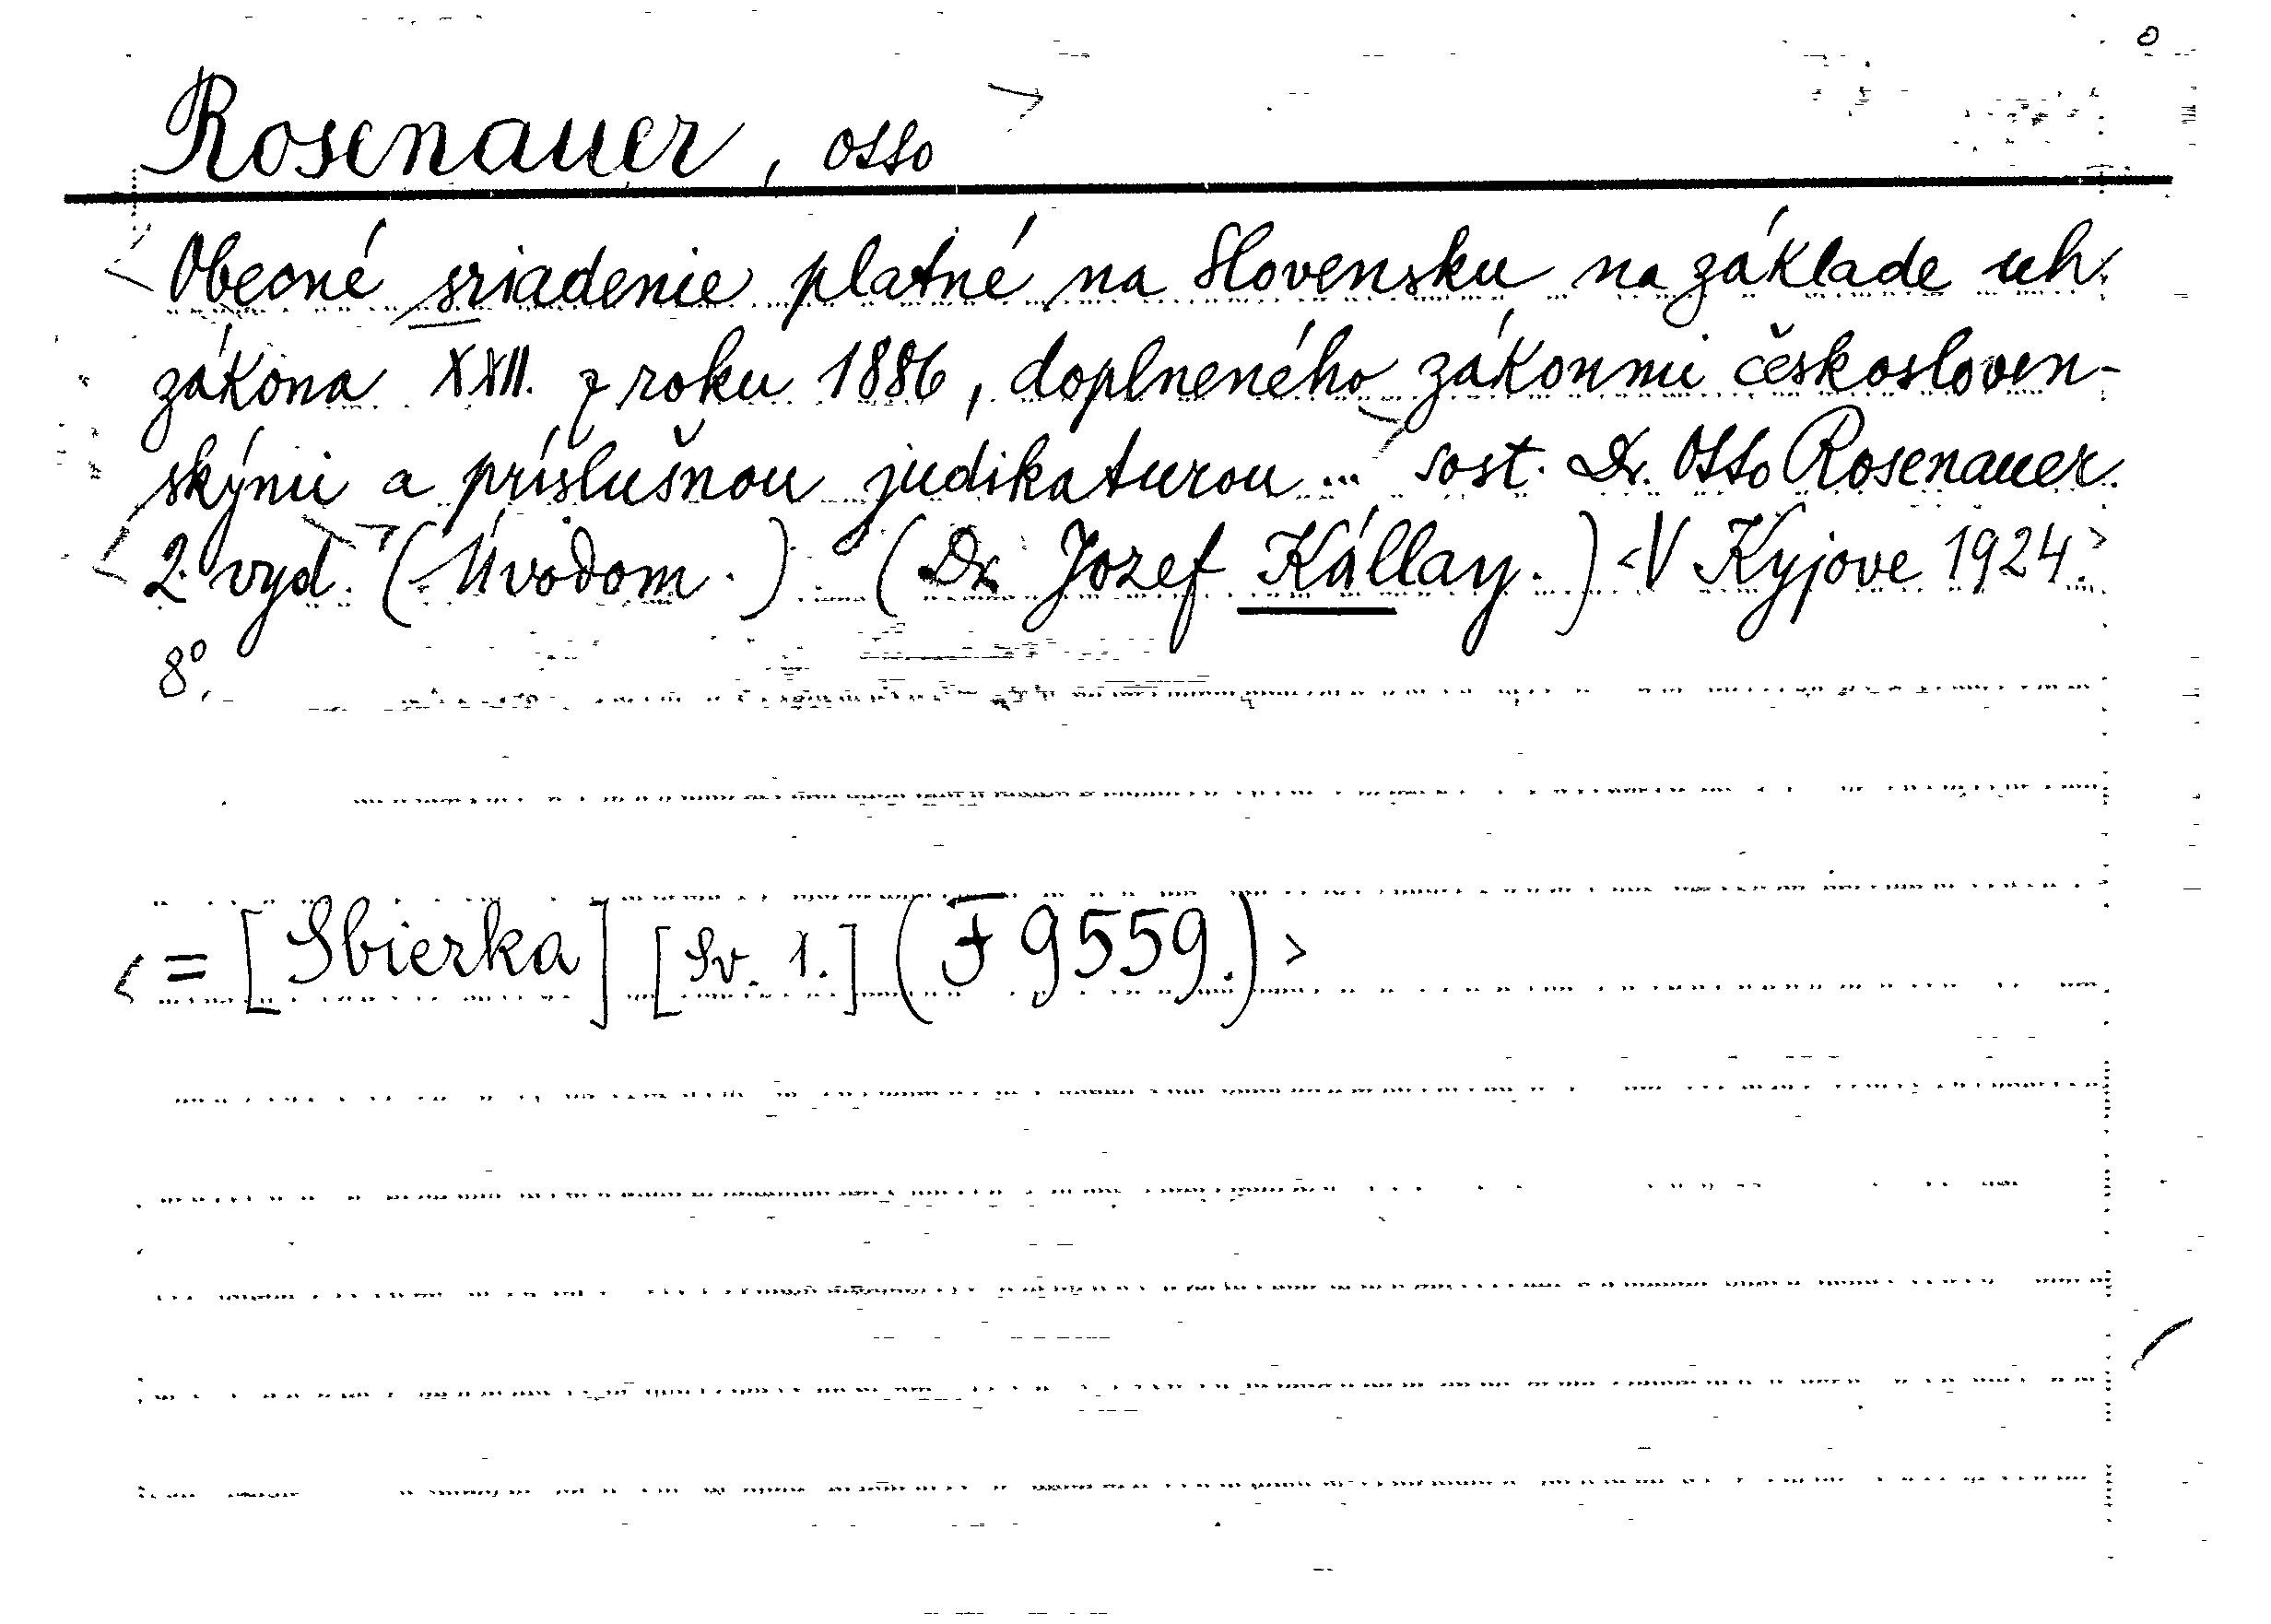 Rosenauer, Otto
Obecné sriadenie platné na Slovensku na základe uh.
zákona XXII. z roku 1886, doplneného zákonmi českosloven-
skými a príslušnou judikaturou ... sost. Dr. Otto Rosenauer.
2. vyd. (Úvodom.) (Dr Jozef Kállay.) V Kyjove 1924.
8°.
= [Sbierka] [Sv. 1.] (F 9559.)